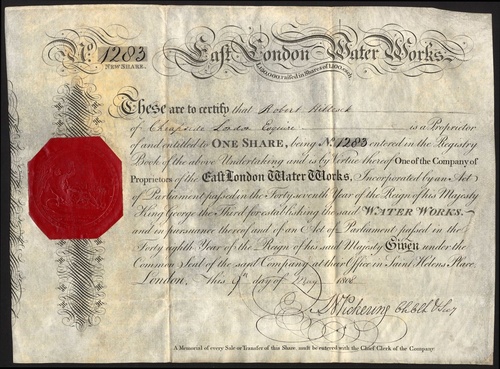 No. 1283
NEW SHARE.
East London Water Works.
£100,000 raised in Shares of £100 each
These are to certify that Robert
of Cheapside London Esquire is a Proprietor
of and entitled to ONE SHARE, being No. 1283 entered in the Registry
Book of the above Undertaking and is by Virtue thereof One of the Company of
Proprietors of the EAST LONDON WATER WORKS, Incorporated by an Act
of Parliament passed in the Forty seventh Year of the Reign of his Majesty
King George the Third for establishing the said WATER WORKS.
and in pursuance thereof and of an Act of Parliament passed in the
Forty eighth Year of the Reign of his said Majesty Given under the
Common Seal of the said Company at their Office in Saint Helens Place,
London, This 9th day of May 1808
Pickering
A Memorial of every Sale or Transfer of this Share, must be entered with the Chief Clerk of the Company.